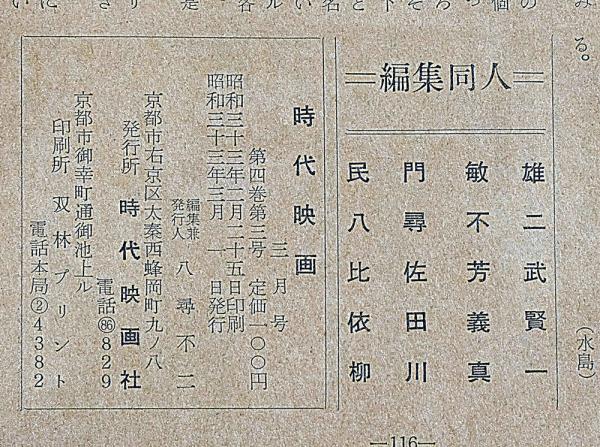 る。
(水島)
編集同人
民門敏雄
八尋不二
比佐芳武
依田義賢
柳川真一
時代映画
三月号
第四巻第三号 定価一〇〇円
昭和三十三年二月二十五日印刷
昭和三十三年三月一日発行
編集兼
発行人 八尋不二
京都市右京区太秦西蜂岡町九ノ八
発行所 時代映画社
電話㊏829
京都市御幸町通御池上ル
印刷所 双林プリント
電話本局②4382
―116―